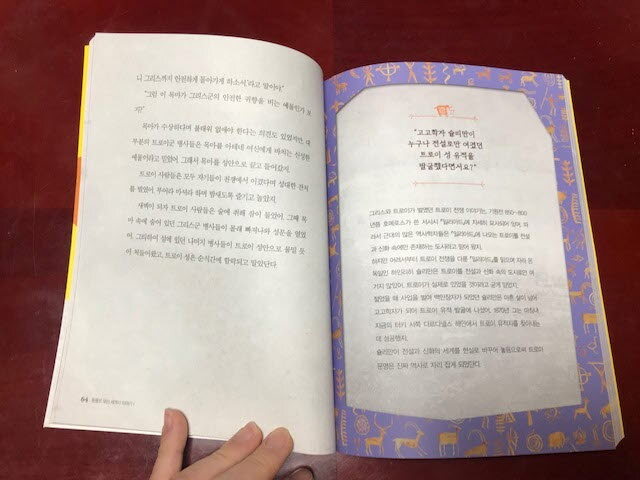 니 그리스까지 안전하게 돌아가게 하소서'라고 말이야."
"그럼 이 목마가 그리스군의 안전한 귀향을 비는 예물인가 보
지?"
목마가 수상하다며 불태워 없애야 한다는 의견도 있었지만, 대
부분의 트로이군 병사들은 목마를 아테네 여신에게 바치는 신성한
예물이라고 믿었어. 그래서 목마를 성안으로 끌고 들어갔지.
트로이 사람들은 모두 자기들이 전쟁에서 이겼다며 성대한 잔치
를 벌였어. 부어라 마셔라 하며 밤새도록 즐기고 놀았지.
새벽이 되자 트로이 사람들은 술에 취해 잠이 들었어. 그때 목
마 속에 숨어 있던 그리스군 병사들이 몰래 빠져나와 성문을 열었
어. 그러하여 성에 있던 나머지 병사들이 트로이 성안으로 물밀 듯
이 쳐들어왔고, 트로이 성은 순식간에 함락되고 말았단다.
64
"고고학자 슐리만이
누구나 전설로만 여겼던
트로이 성 유적을
발굴했다면서요?"
그리스와 트로이가 벌였던 트로이 전쟁 이야기는, 기원전 850~800
년쯤 호메로스가 쓴 서사시 『일리아드』에 자세히 묘사되어 있어. 따
라서 근대의 많은 역사학자들은 『일리아드』에 나오는 트로이를 전설
과 신화 속에만 존재하는 도시라고 믿어 왔지.
하지만 어려서부터 트로이 전쟁을 다룬 『일리아드』를 읽으며 자라 온
독일인 하인리히 슐리만은 트로이를 전설과 신화 속의 도시로만 여
기지 않았어. 트로이가 실제로 있었을 것이라고 굳게 믿었지.
젊었을 때 사업을 벌여 백만장자가 되었던 슐리만은 마흔 살이 넘어
고고학자가 되어 트로이 유적 발굴에 나섰어. 1870년 그는 마침내
지금의 터키 서쪽 다르다넬스 해안에서 트로이 유적지를 찾아내는
데 성공했지.
슐리만이 전설과 신화의 세계를 현실로 바꾸어 놓음으로써 트로이
문명은 진짜 역사로 자리 잡게 되었단다.